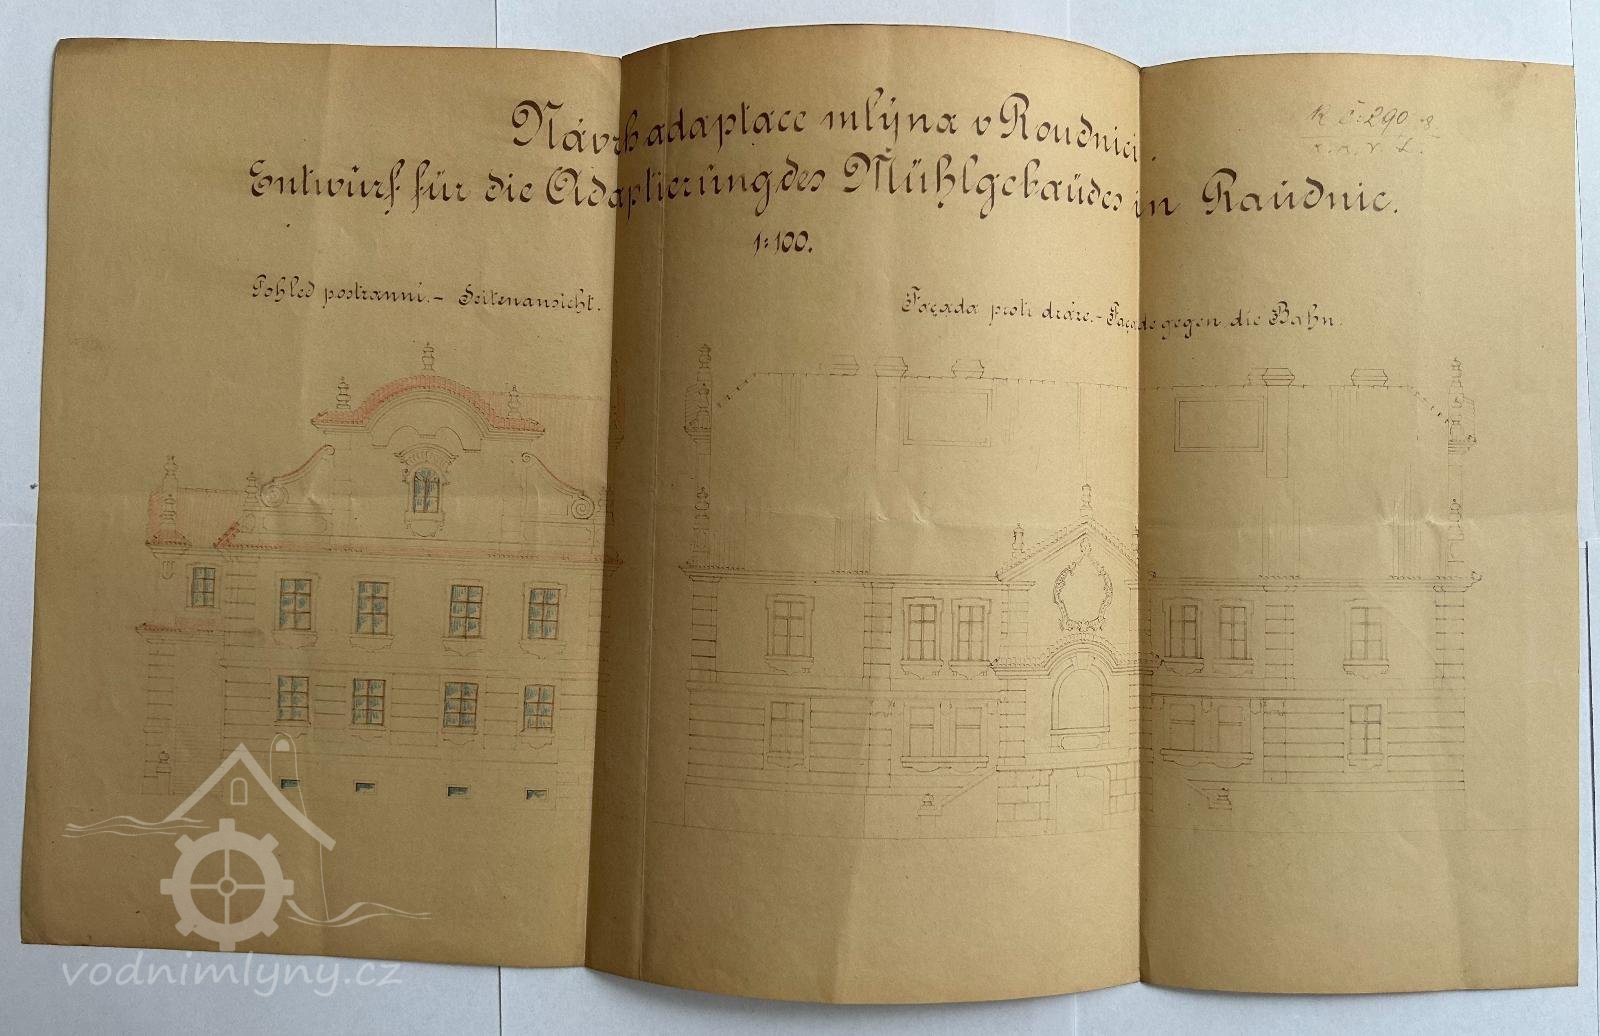 Návrh adaptace mlýna v Roudnici.
Entwurf für die Adaptierung des Mühlgebäudes in Raudnic.
1:100.
Pohled postranní. – Seitenansicht.
Façada proti dráze. – Façade gegen die Bahn.
K č. 290
vodnimlyny.cz